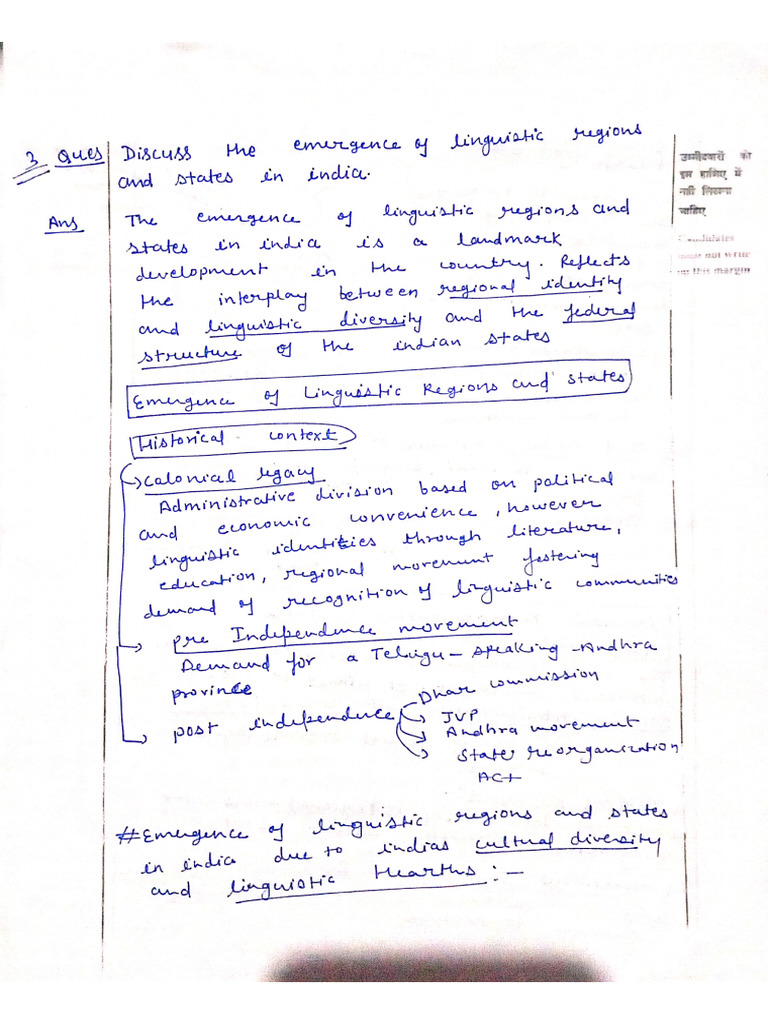 3 Ques Discuss the emergence of linguistic regions
and states in india.
Ans The emergence of linguistic regions and
states in india is a landmark
development in the country. Reflects
the interplay between regional identity
and linguistic diversity and the federal
structure of the indian states
Emergence of Linguistic Regions and states
Historical context
colonial legacy
Administrative division based on political
and economic convenience, however
linguistic identities through literature,
education, regional movement fostering
demand of recognition of linguistic communities
pre Independence movement
Demand for a Telugu - speaking - Andhra
province
post independence
Dhar commission
JVP
Andhra movement
State reorganization
ACt
# Emergence of linguistic regions and states
in india due to indias cultural diversity
and linguistic Hearths : -
उम्मीदवारों को
इस हाशिए में
नहीं लिखना
चाहिए
Candidates
must not write
on this margin